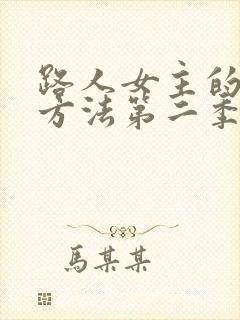 路人女主的
方法第二季
馬某某